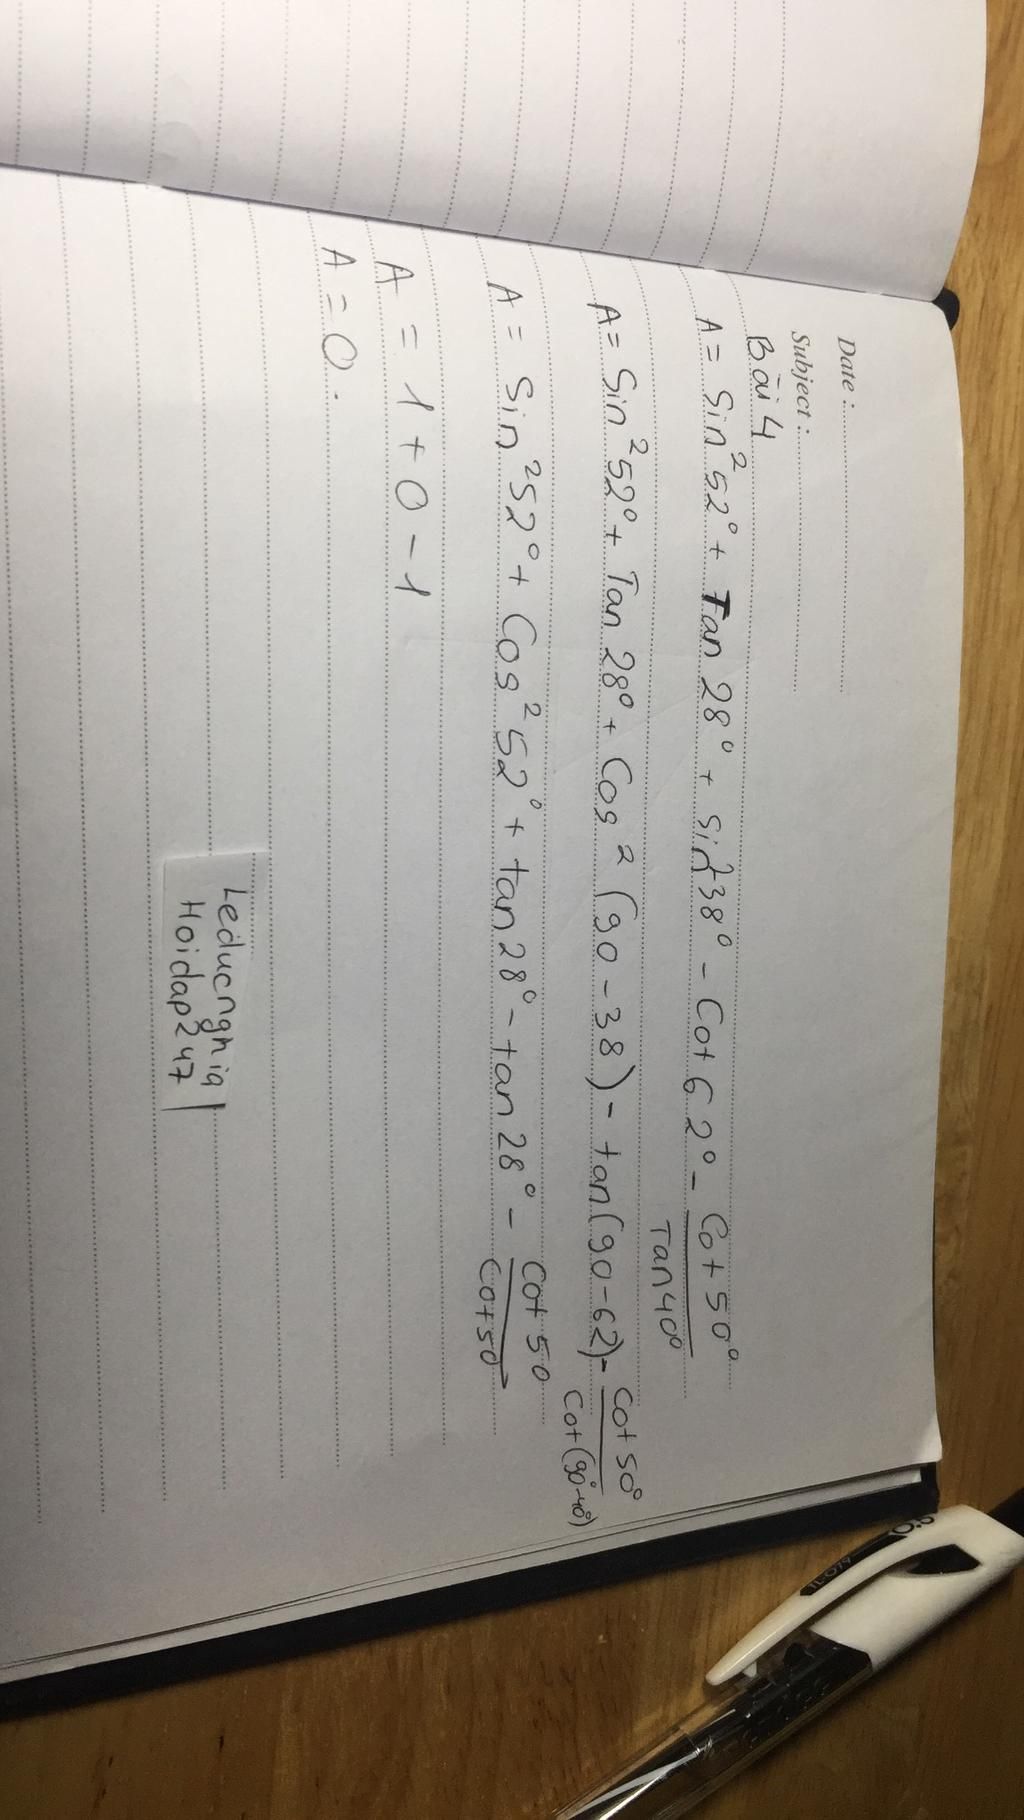 Date :
Subject :
Bài 4
A = Sin²52° + Tan 28° + sin²38° - Cot 62° - Cot 50° / Tan 40°
A = Sin²52° + Tan 28° + Cos² (90 - 38) - tan(90-62) - Cot 50° / Cot (90°-40°)
A = Sin²52° + Cos²52° + tan 28° - tan 28° - Cot 50 / Cot 50
A = 1 + 0 - 1
A = 0.
Leducnghia
Hoidap247
TL-079